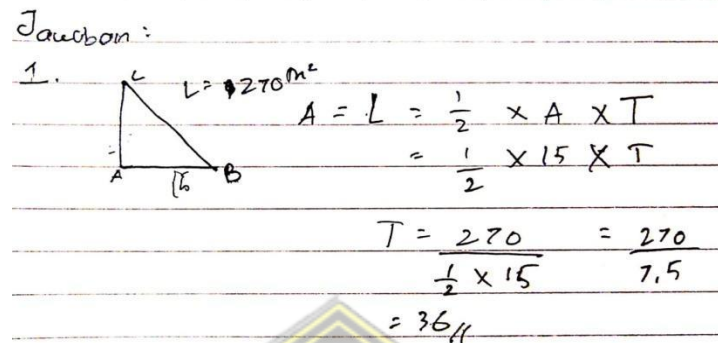 Jawaban :
1.
C
L = 270 m²
A
15
B
A = L = 1/2 × A × T
= 1/2 × 15 × T
T = 270 / (1/2 × 15) = 270 / 7,5
= 36 //